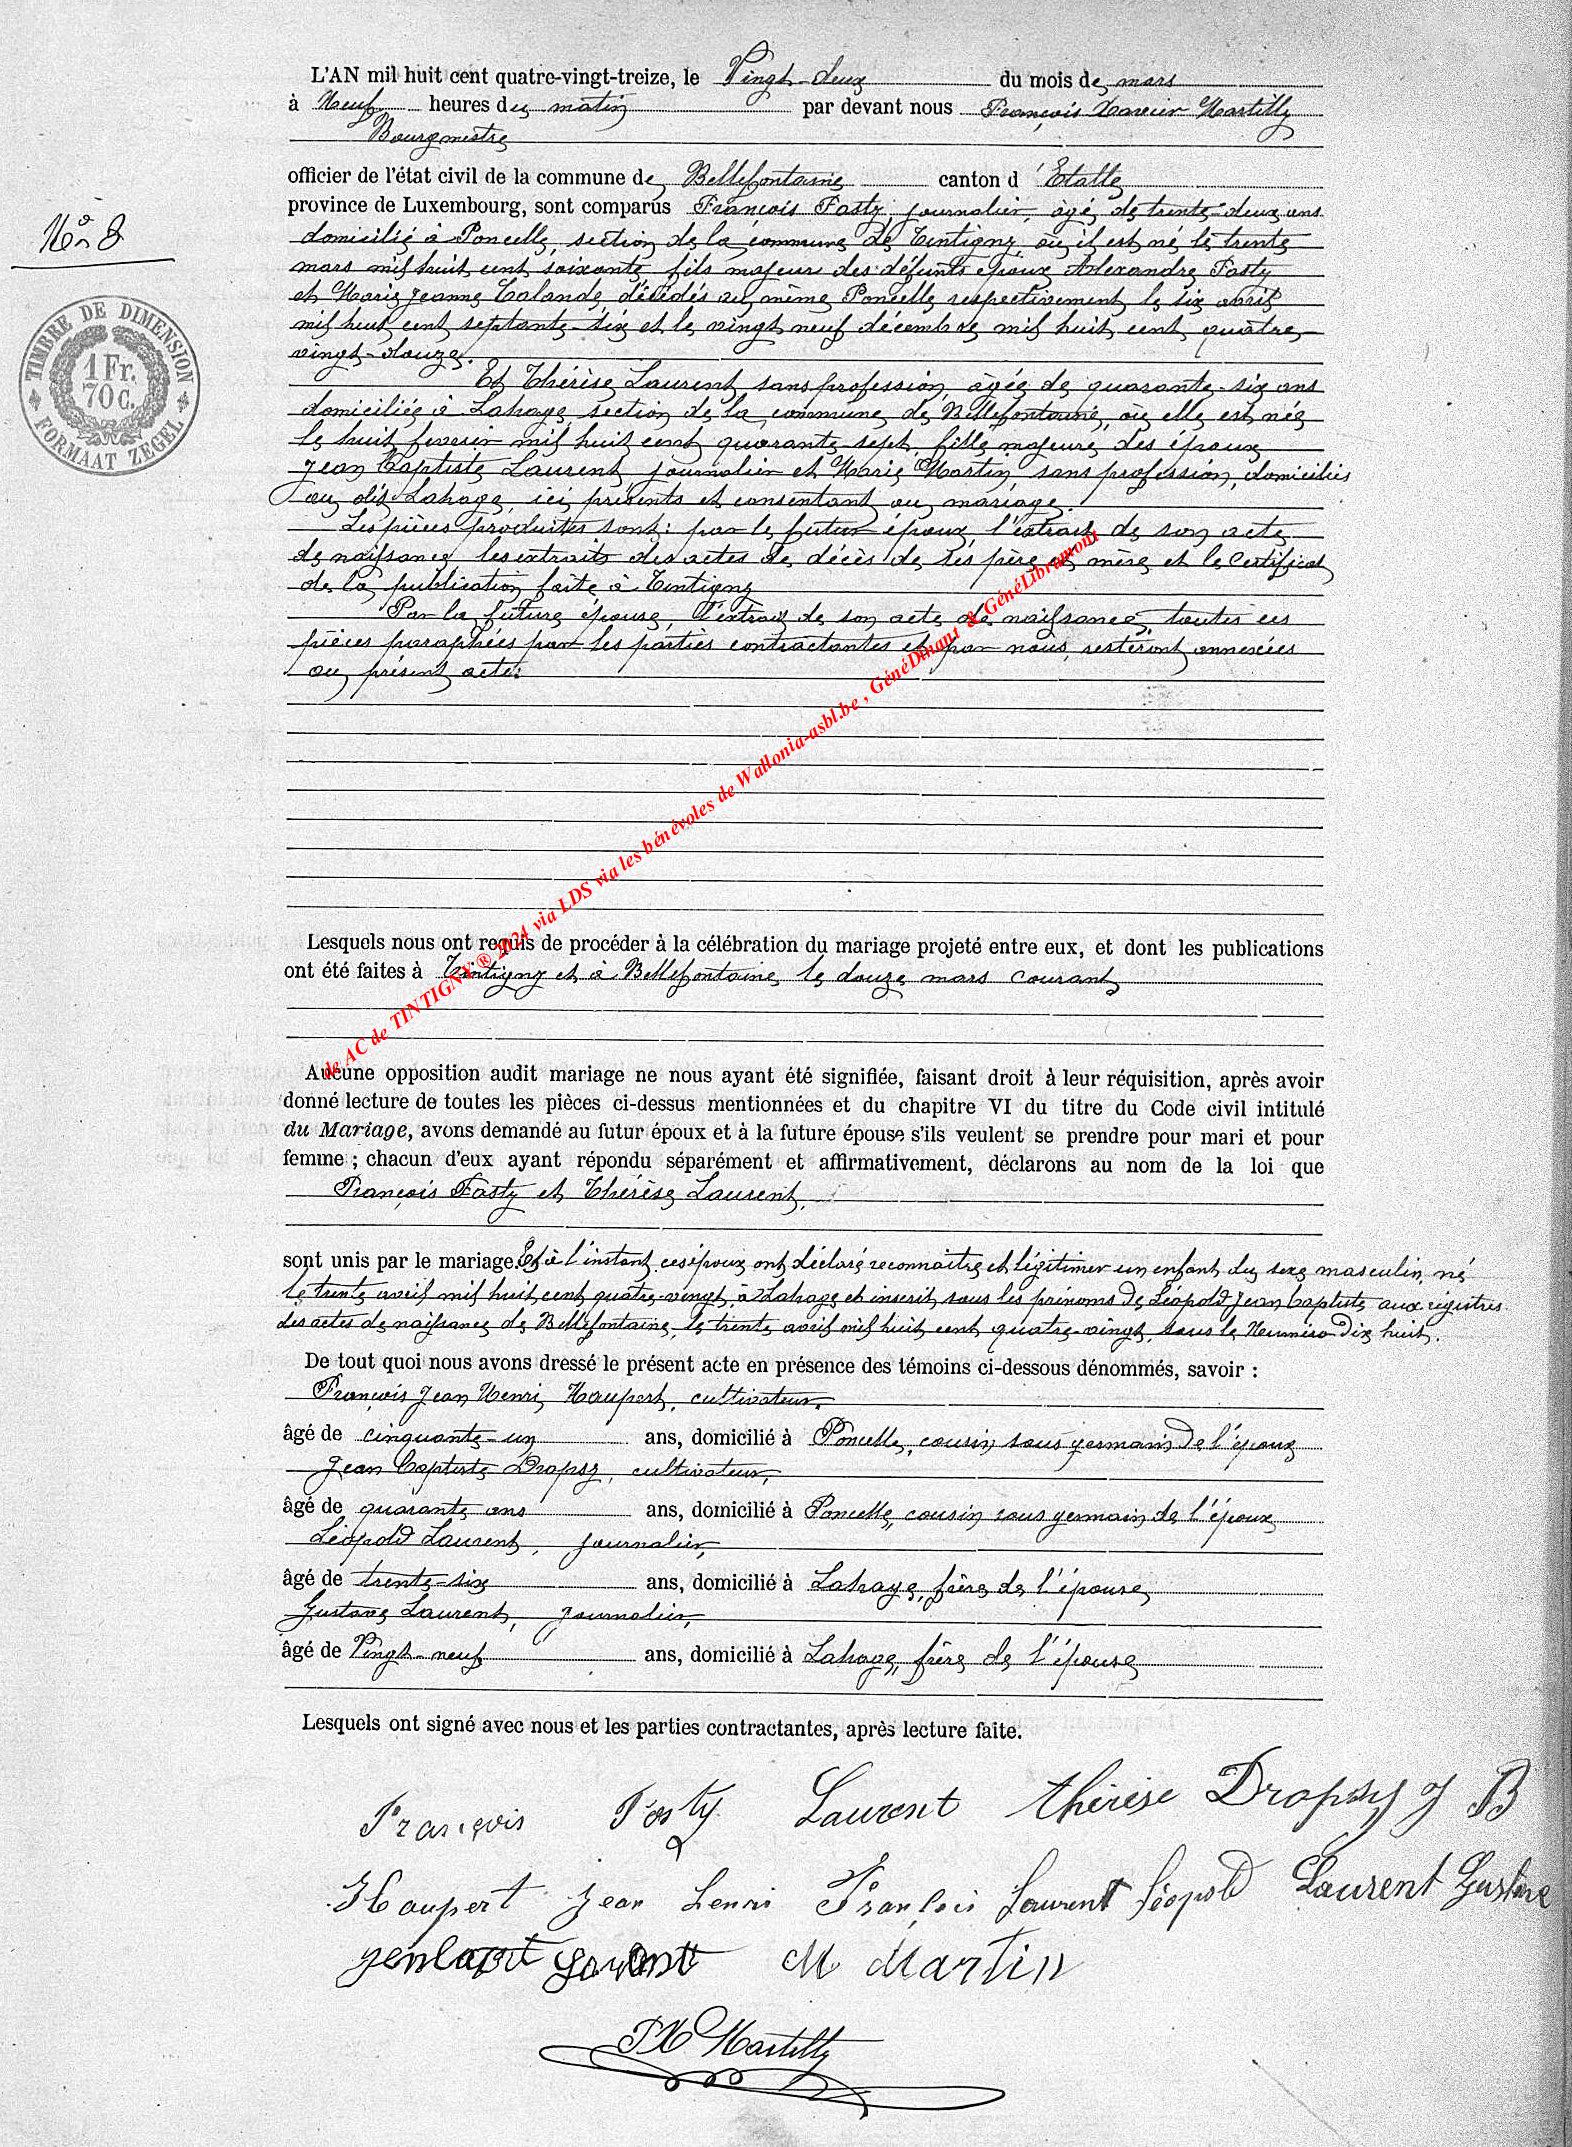 L'AN mil huit cent quatre-vingt-treize, le Vingt-deux du mois de mars
à Neuf heures du matin par devant nous François Xavier Martilly
Bourgmestre
officier de l'état civil de la commune de Bellefontaine canton d'Etalle
province de Luxembourg, sont comparus François Fasty, journalier, âgé de trente-deux ans
domicilié à Poncelle, section de la commune de Tintigny, où il est né le trente
mars mil huit cent soixante, fils majeur des défunts époux Alexandre Fasty
et Marie Jeanne Lalande, décédés au même Poncelle respectivement le six avril
mil huit cent septante-six et le vingt neuf décembre mil huit cent quatre
vingt-douze.
Et Thérèse Laurent, sans profession, âgée de quarante-six ans
domiciliée à Lahage, section de la commune de Bellefontaine, où elle est née
le huit fevrier mil huit cent quarante-sept, fille majeure des époux
Jean Baptiste Laurent, journalier et Marie Martin, sans profession, domiciliés
au dit Lahage, ici présents et consentant au mariage.
Les pièces produites sont: par le futur époux, l'extrait de son acte
de naissance, les extraits des actes de décès de ses père et mère et le certificat
de la publication faite à Tintigny
Par la future épouse, l'extrait de son acte de naissance, toutes ces
pièces paraphées par les parties contractantes et par nous, resteront annexées
au présent acte.
Nº 8
TIMBRE DE DIMENSION
1 Fr.
70 C.
FORMAAT ZEGEL
de AC de TINTIGNY ® 2024 via LDS via les bénévoles de Wallonia-asbl.be , GénéDinant & GénéLibramont
Lesquels nous ont requis de procéder à la célébration du mariage projeté entre eux, et dont les publications
ont été faites à Tintigny et à Bellefontaine, le douze mars courant
Aucune opposition audit mariage ne nous ayant été signifiée, faisant droit à leur réquisition, après avoir
donné lecture de toutes les pièces ci-dessus mentionnées et du chapitre VI du titre du Code civil intitulé
du Mariage, avons demandé au futur époux et à la future épouse s'ils veulent se prendre pour mari et pour
femme ; chacun d'eux ayant répondu séparément et affirmativement, déclarons au nom de la loi que
François Fasty et Thérèse Laurent,
sont unis par le mariage. Et à l'instant ces époux ont déclaré reconnaitre et légitimer un enfant du sexe masculin, né
le trente avril mil huit cent quatre-vingt, à Lahage et inscrit sous les prénoms de Léopold Jean Baptiste aux régistres
des actes de naissance de Bellefontaine, le trente avril mil huit cent quatre-vingt, sous le Numéro Dix huit.
De tout quoi nous avons dressé le présent acte en présence des témoins ci-dessous dénommés, savoir :
François Jean Henri Haupert, cultivateur,
âgé de cinquante-un ans, domicilié à Poncelle, cousin sous germain de l'époux
Jean Baptiste Dropsy, cultivateur,
âgé de quarante ans ans, domicilié à Poncelle, cousin sous germain de l'époux
Léopold Laurent, journalier,
âgé de trente-six ans, domicilié à Lahage, frère de l'épouse,
Gustave Laurent, journalier,
âgé de Vingt-neuf ans, domicilié à Lahage, frère de l'épouse
Lesquels ont signé avec nous et les parties contractantes, après lecture faite.
François Fasty Laurent thérèse Dropsy J B
Haupert Jean henri François Laurent Léopold Laurent Gustave
M Martin
FX Martilly